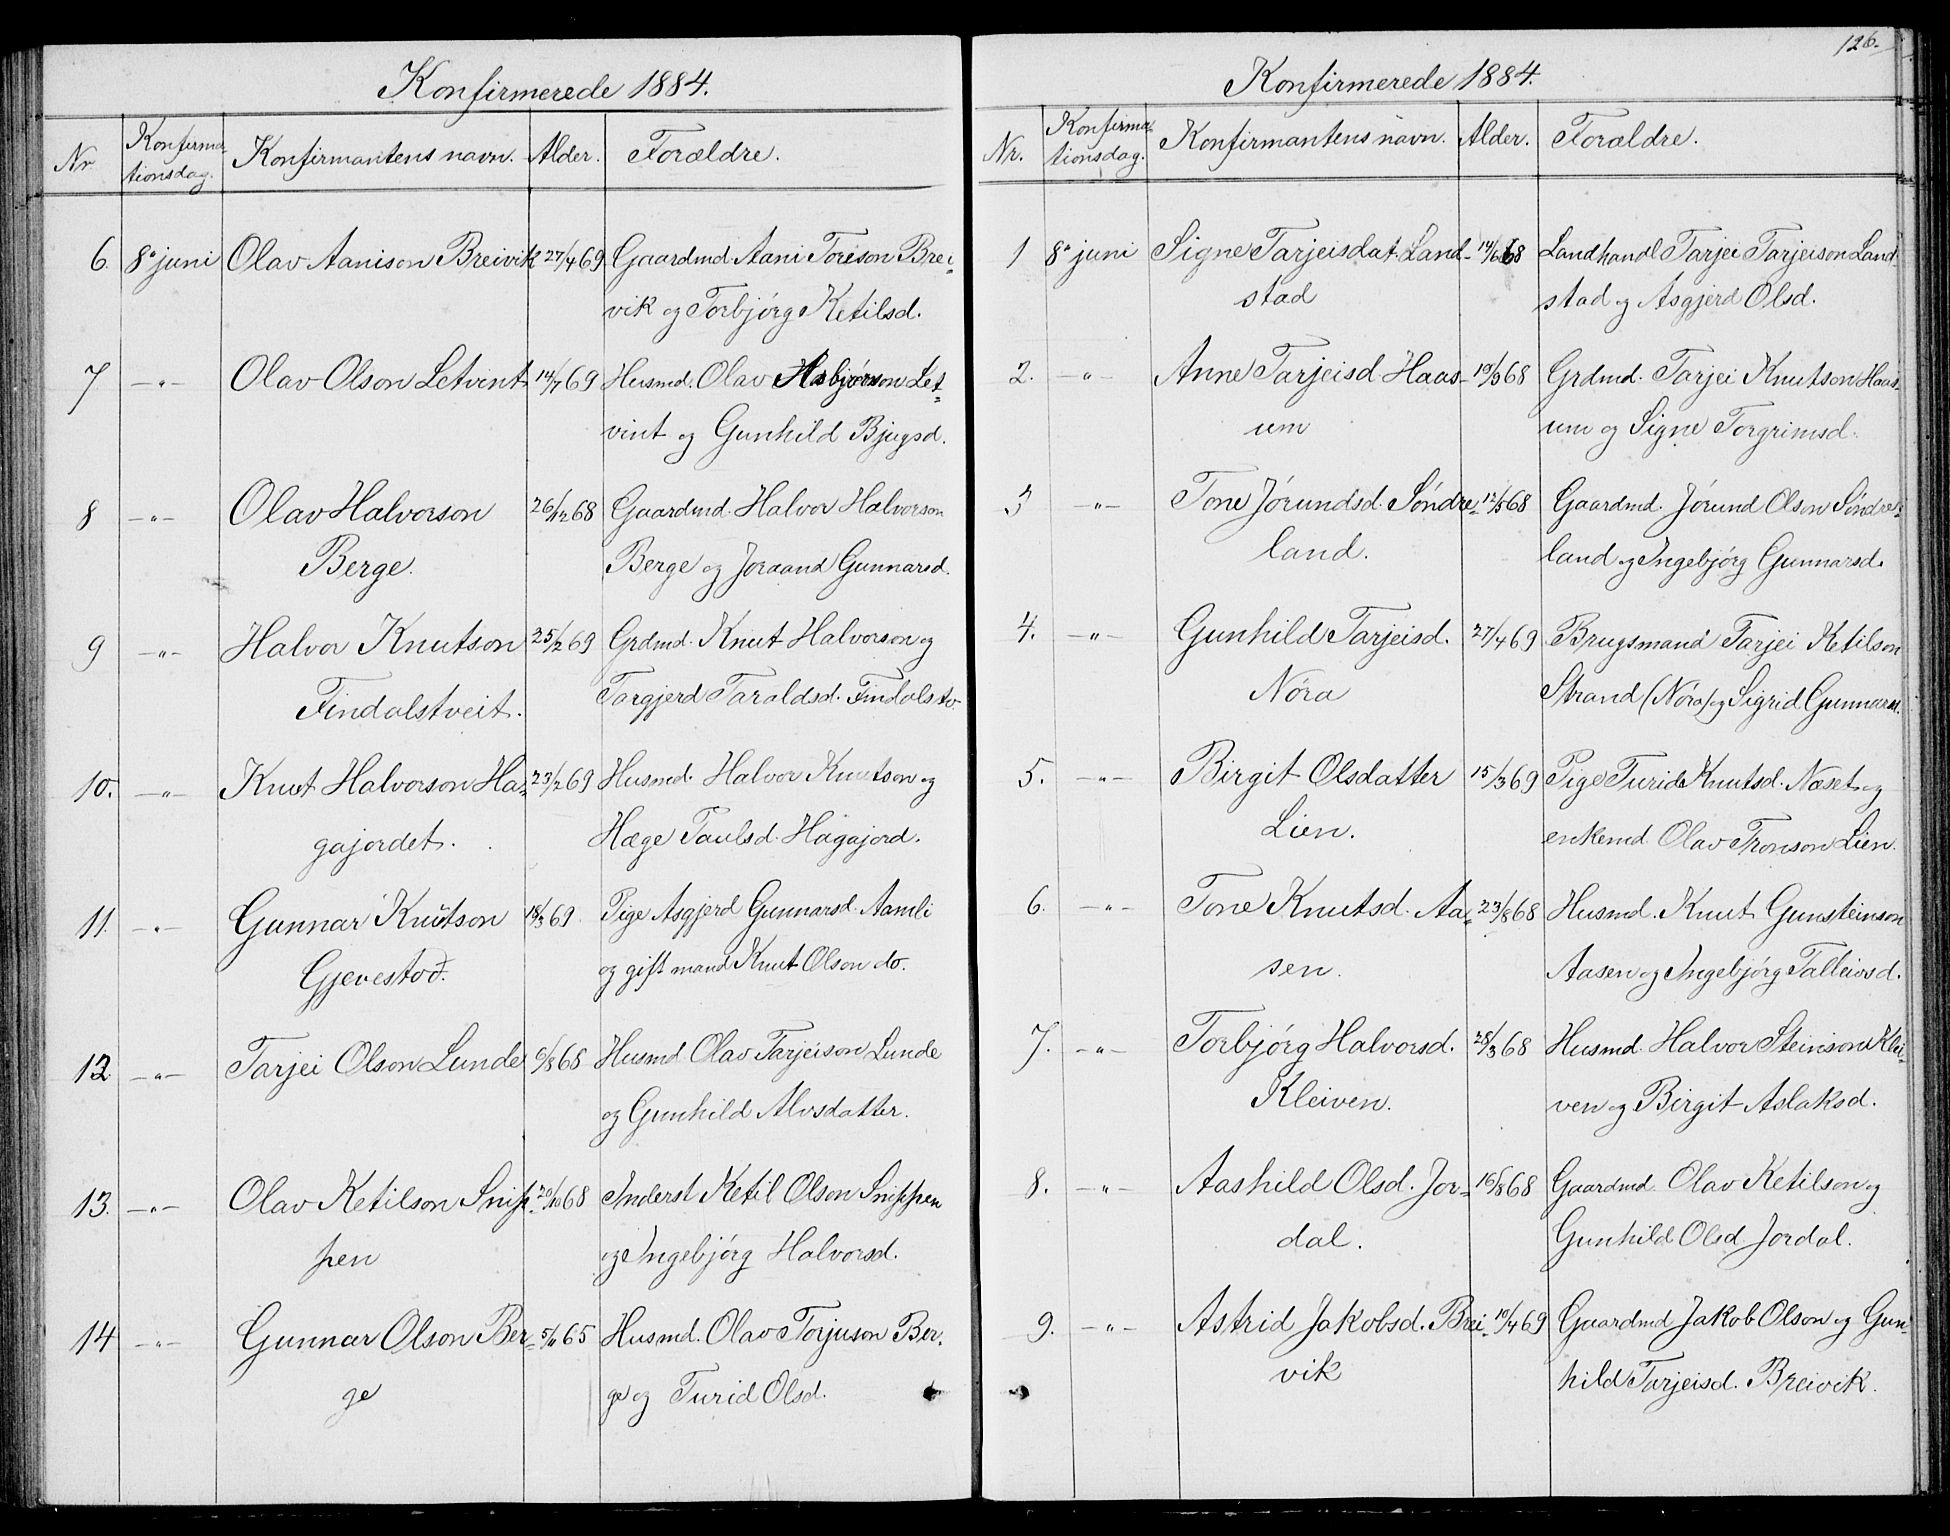 Konfirmerede 1884.
Nr. Konfirma- Konfirmantens navn. Alder. Forældre.
tionsdag.
6. 8de juni Olav Aanison Breivik 27/4 69 Gaardmd. Aani Toreson Brei-
vik og Torbjörg Ketilsd.
7 -"- Olav Olson Letvint 14/7 69 Husmd. Olav Asbjörnson Let-
vint og Gunhild Bjugsd.
8 -"- Olav Halvorson 26/12 68 Gaardmd. Halvor Halvorson
Berge. Berge og Joraand Gunnarsd.
9 -"- Halvor Knutson 25/2 69 Grdmd. Knut Halvorson og
Findalstveit. Targjerd Taraldsd. Findalstv.
10. -"- Knut Halvorson Ha- 23/2 69 Husmd. Halvor Knutson og
gajordet. Hæge Taulsd. Hagajord.
11. -"- Gunnar Knutson 18/3 69. Pige Asgjerd Gunnarsd. Aamli
Gjevestod. og gift mand Knut Olson do.
12 -"- Tarjei Olson Lunde 6/8 68 Husmd. Olav Tarjeison Lunde
og Gunhild Alvsdatter.
13. -"- Olav Ketilson Snip- 20/10 68 Inderst Ketil Olson Snippen
pen og Ingebjörg Halvorsd.
14 -"- Gunnar Olson Ber- 5/11 65 Husmd. Olav Torjuson Ber-
ge ge og Turid Olsd.
126.
Konfirmerede 1884.
Nr. Konfirma- Konfirmantens navn. Alder. Forældre.
tionsdag.
1 8de juni Signe Tarjeisdat. Land- 14/6 68 Landhandl. Tarjei Tarjeison Land-
stad stad og Asgjerd Olsd.
2. -"- Anne Tarjeisd Haas- 19/9 68 Grdmd. Tarjei Knutson Haas-
um um og Signe Torgrimsd.
3 -"- Tone Jörundsd. Söndre- 12/5 68 Gaardmd. Jörund Olson Söndre-
land. land og Ingebjörg Gunnarsd.
4. -"- Gunhild Tarjeisd. 27/4 69 Brugsmand Tarjei Ketilson
Nöra Strand (Nöra) og Sigrid Gunnarsd.
5. -"- Birgit Olsdatter 15/3 69 Pige Turid Knutsd. Næset og
Lien. enkemd. Olav Tronson Lien.
6. -"- Tone Knutsd. Aa- 23/8 68 Husmd. Knut Gunsteinson
sen. Aasen og Ingebjörg Talleivsd.
7. -"- Torbjörg Halvorsd. 28/3 68 Husmd. Halvor Steinson Klei-
Kleiven. ven og Birgit Aslaksd.
8. -"- Aashild Olsd. Jor- 16/8 68 Gaardmd. Olav Ketilson og
dal. Gunhild Olsd Jordal.
9. -"- Astrid Jakobsd. Brei- 10/4 69 Gaardmd Jakob Olson og Gun-
vik hild Tarjeisd. Breivik.